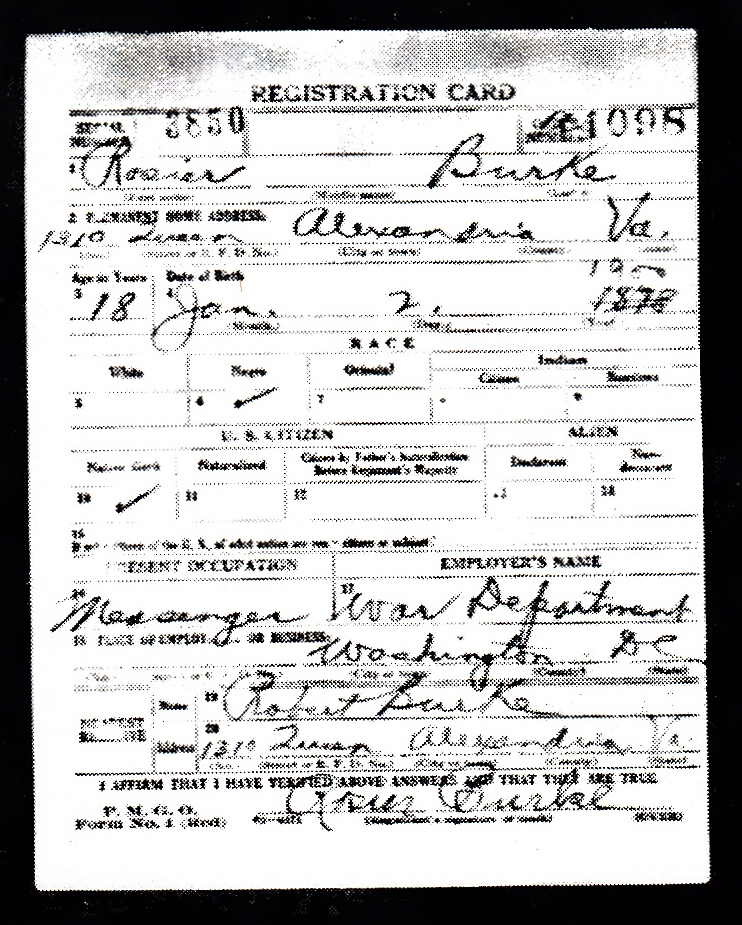 REGISTRATION CARD
SERIAL NUMBER 3850 1098
1 Rosier Burke
2 PERMANENT HOME ADDRESS:
1310 Queen Alexandria Va.
(Street or R. F. D. No.) (City or town) (County) (State)
Age in Years Date of Birth 1900
3 18 4 Jan. 2, 1878
(Month) (Day) (Year)
RACE
White Negro Oriental Indian
Citizen Noncitizen
5 6 ✓ 7 9
U. S. CITIZEN ALIEN
Native Born Naturalized Citizen by Father's Naturalization Before Registrant's Majority Declarant Non-declarant
10 ✓ 11 12 14
15
of the U. S., of what nation are you a citizen or subject?
PRESENT OCCUPATION EMPLOYER'S NAME
16 Messenger 17 War Department
18 PLACE OF EMPLOYMENT OR BUSINESS:
Washington DC
(County) (State)
NEAREST RELATIVE Name 19 Robert Burke
Address 20 1310 Queen Alexandria, Va.
(Street or R. F. D. No.) (City or town) (County) (State)
I AFFIRM THAT I HAVE VERIFIED ABOVE ANSWERS AND THAT THEY ARE TRUE
P. M. G. O.
Form No. 1 (Red) Rosier Burke
(Registrant's signature or mark) (OVER)